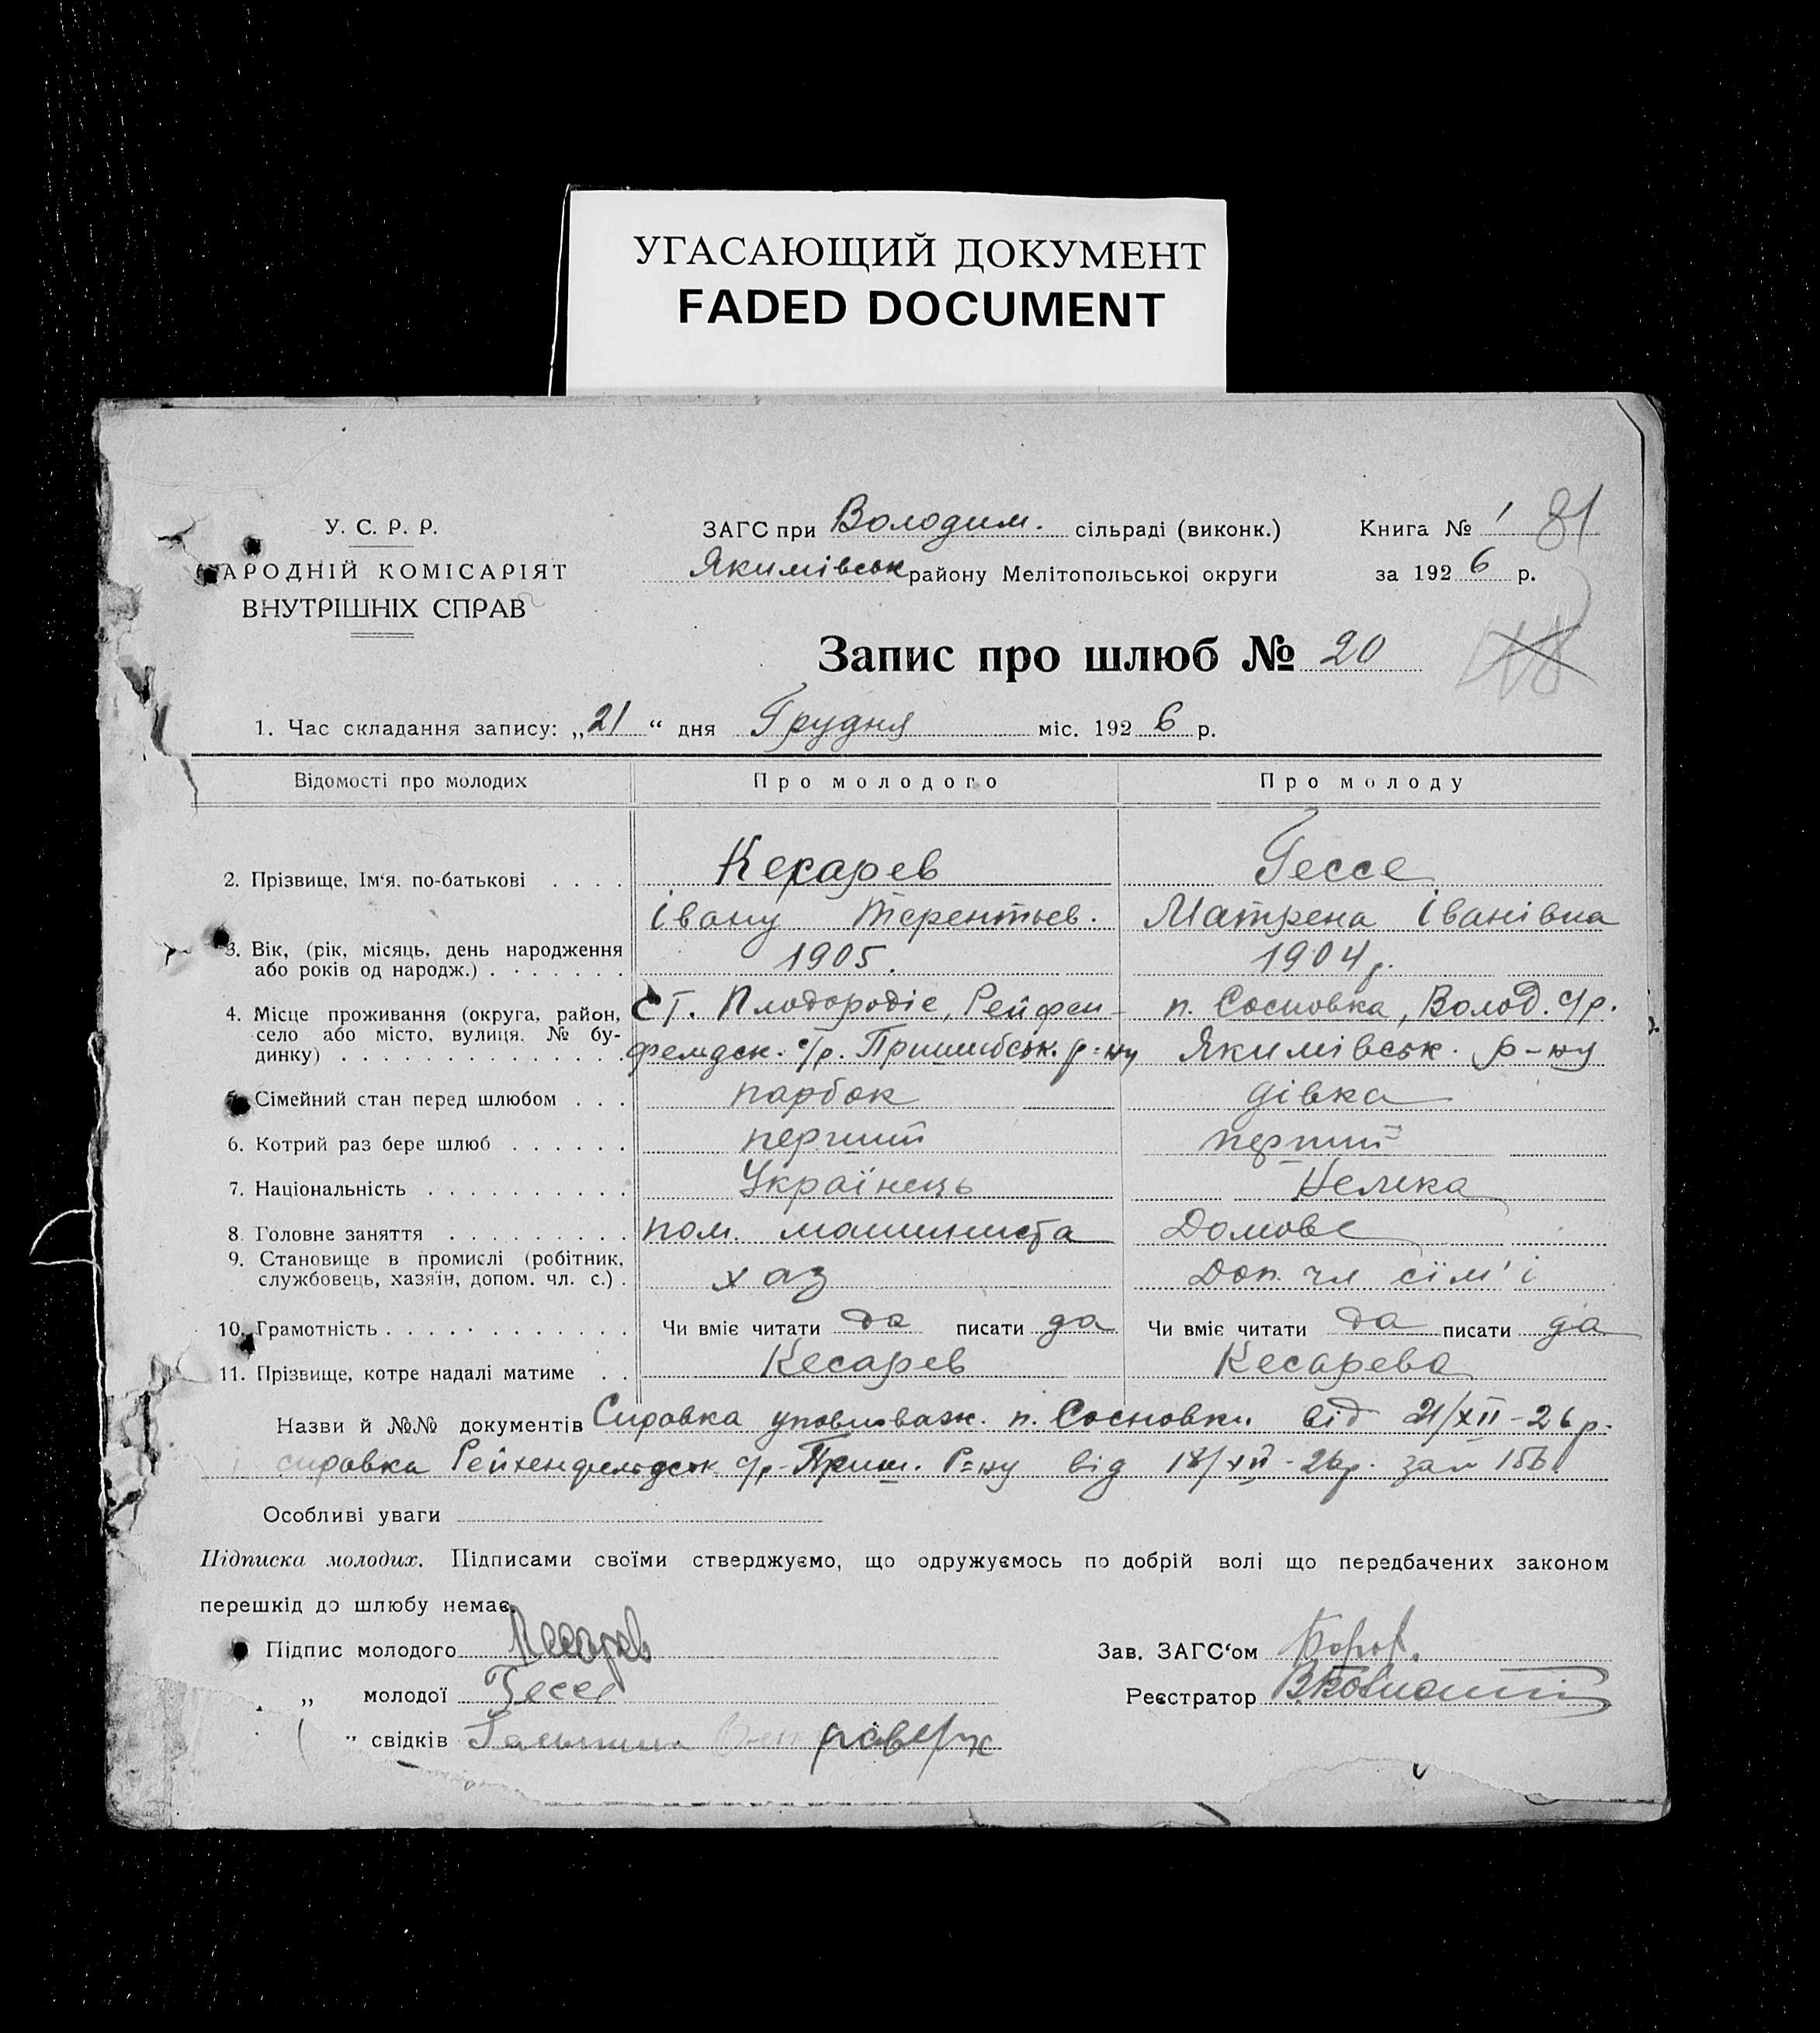 УГАСАЮЩИЙ ДОКУМЕНТ
FADED DOCUMENT
У. С. Р. Р.
НАРОДНІЙ КОМІСАРІЯТ
ВНУТРІШНІХ СПРАВ
ЗАГС при Володим. сільраді (виконк.)
Якимівськ району Мелітопольської округи
Книга № 1 81
за 1926 р.
Запис про шлюб № 20
1. Час складання запису: „21“ дня Грудня міс. 1926 р.
Відомості про молодих Про молодого Про молоду
Кесарев Гессе
2. Прізвище, Ім'я. по-батькові . . . .
Івану Терентьев. Матрена Іванівна
3. Вік, (рік, місяць, день народження 1905. 1904 р.
або років од народж.) . . . . . . .
4. Місце проживання (округа, район, ст. Плодородіє, Рейфен- п. Сосновка, Волод. с/р.
село або місто, вулиця. № бу-
динку) . . . . . . . . . . . . . фемдск. с/р. Пришибськ. р=ну Якимівськ. р-ну
5. Сімейний стан перед шлюбом . . . парбок дівка
6. Котрий раз бере шлюб . . . . . . перший перший
7. Національність . . . . . . . . . . Українець Немка
8. Головне заняття . . . . . . . . . пом. машиниста Домове
9. Становище в промислі (робітник,
службовець, хазяїн, допом. чл. с.) . хаз Доп. чл сїм'ї
10. Грамотність . . . . . . . . . . . . Чи вміє читати да писати да Чи вміє читати да писати да
11. Прізвище, котре надалі матиме . . Кесарев Кесарева
Назви й №№ документів Справка уповноваж. п. Сосновки від 21/XII-26 р.
справка Рейхенфельдськ с/р-Приш. Р=ну від 18/XII-26р. за № 156.
Особливі уваги
Підписка молодих. Підписами своїми стверджуємо, що одружуємось по добрій волі що передбачених законом
перешкід до шлюбу немає.
Підпис молодого Кесарев Зав. ЗАГС'ом
„ молодої Гессе Реєстратор
„ свідків